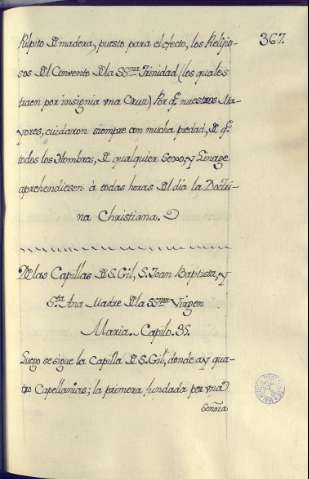 Pulpito de madera, puesto para el efecto, los Religio-
367.
sos del Convento de la SSma. Trinidad (los quales
traen por insignia vna Cruz) Por q.e nuestros Ma-
yores, cuidaron siempre con mucha piedad, de q.e
todos los Hombres, de qualquier Sexo, y Linage
aprehendiesen à todas horas del dia la Doctri-
na Christiana.
De las Capillas de S. Gil, S. Joan Baptista, y
Sta. Ana Madre de la SSma. Virgen
Maria. Capilo. 35.
Luego se sigue la Capilla de S. Gil, donde ay qua-
tro Capellanias; la primera fundada por vna
Señora